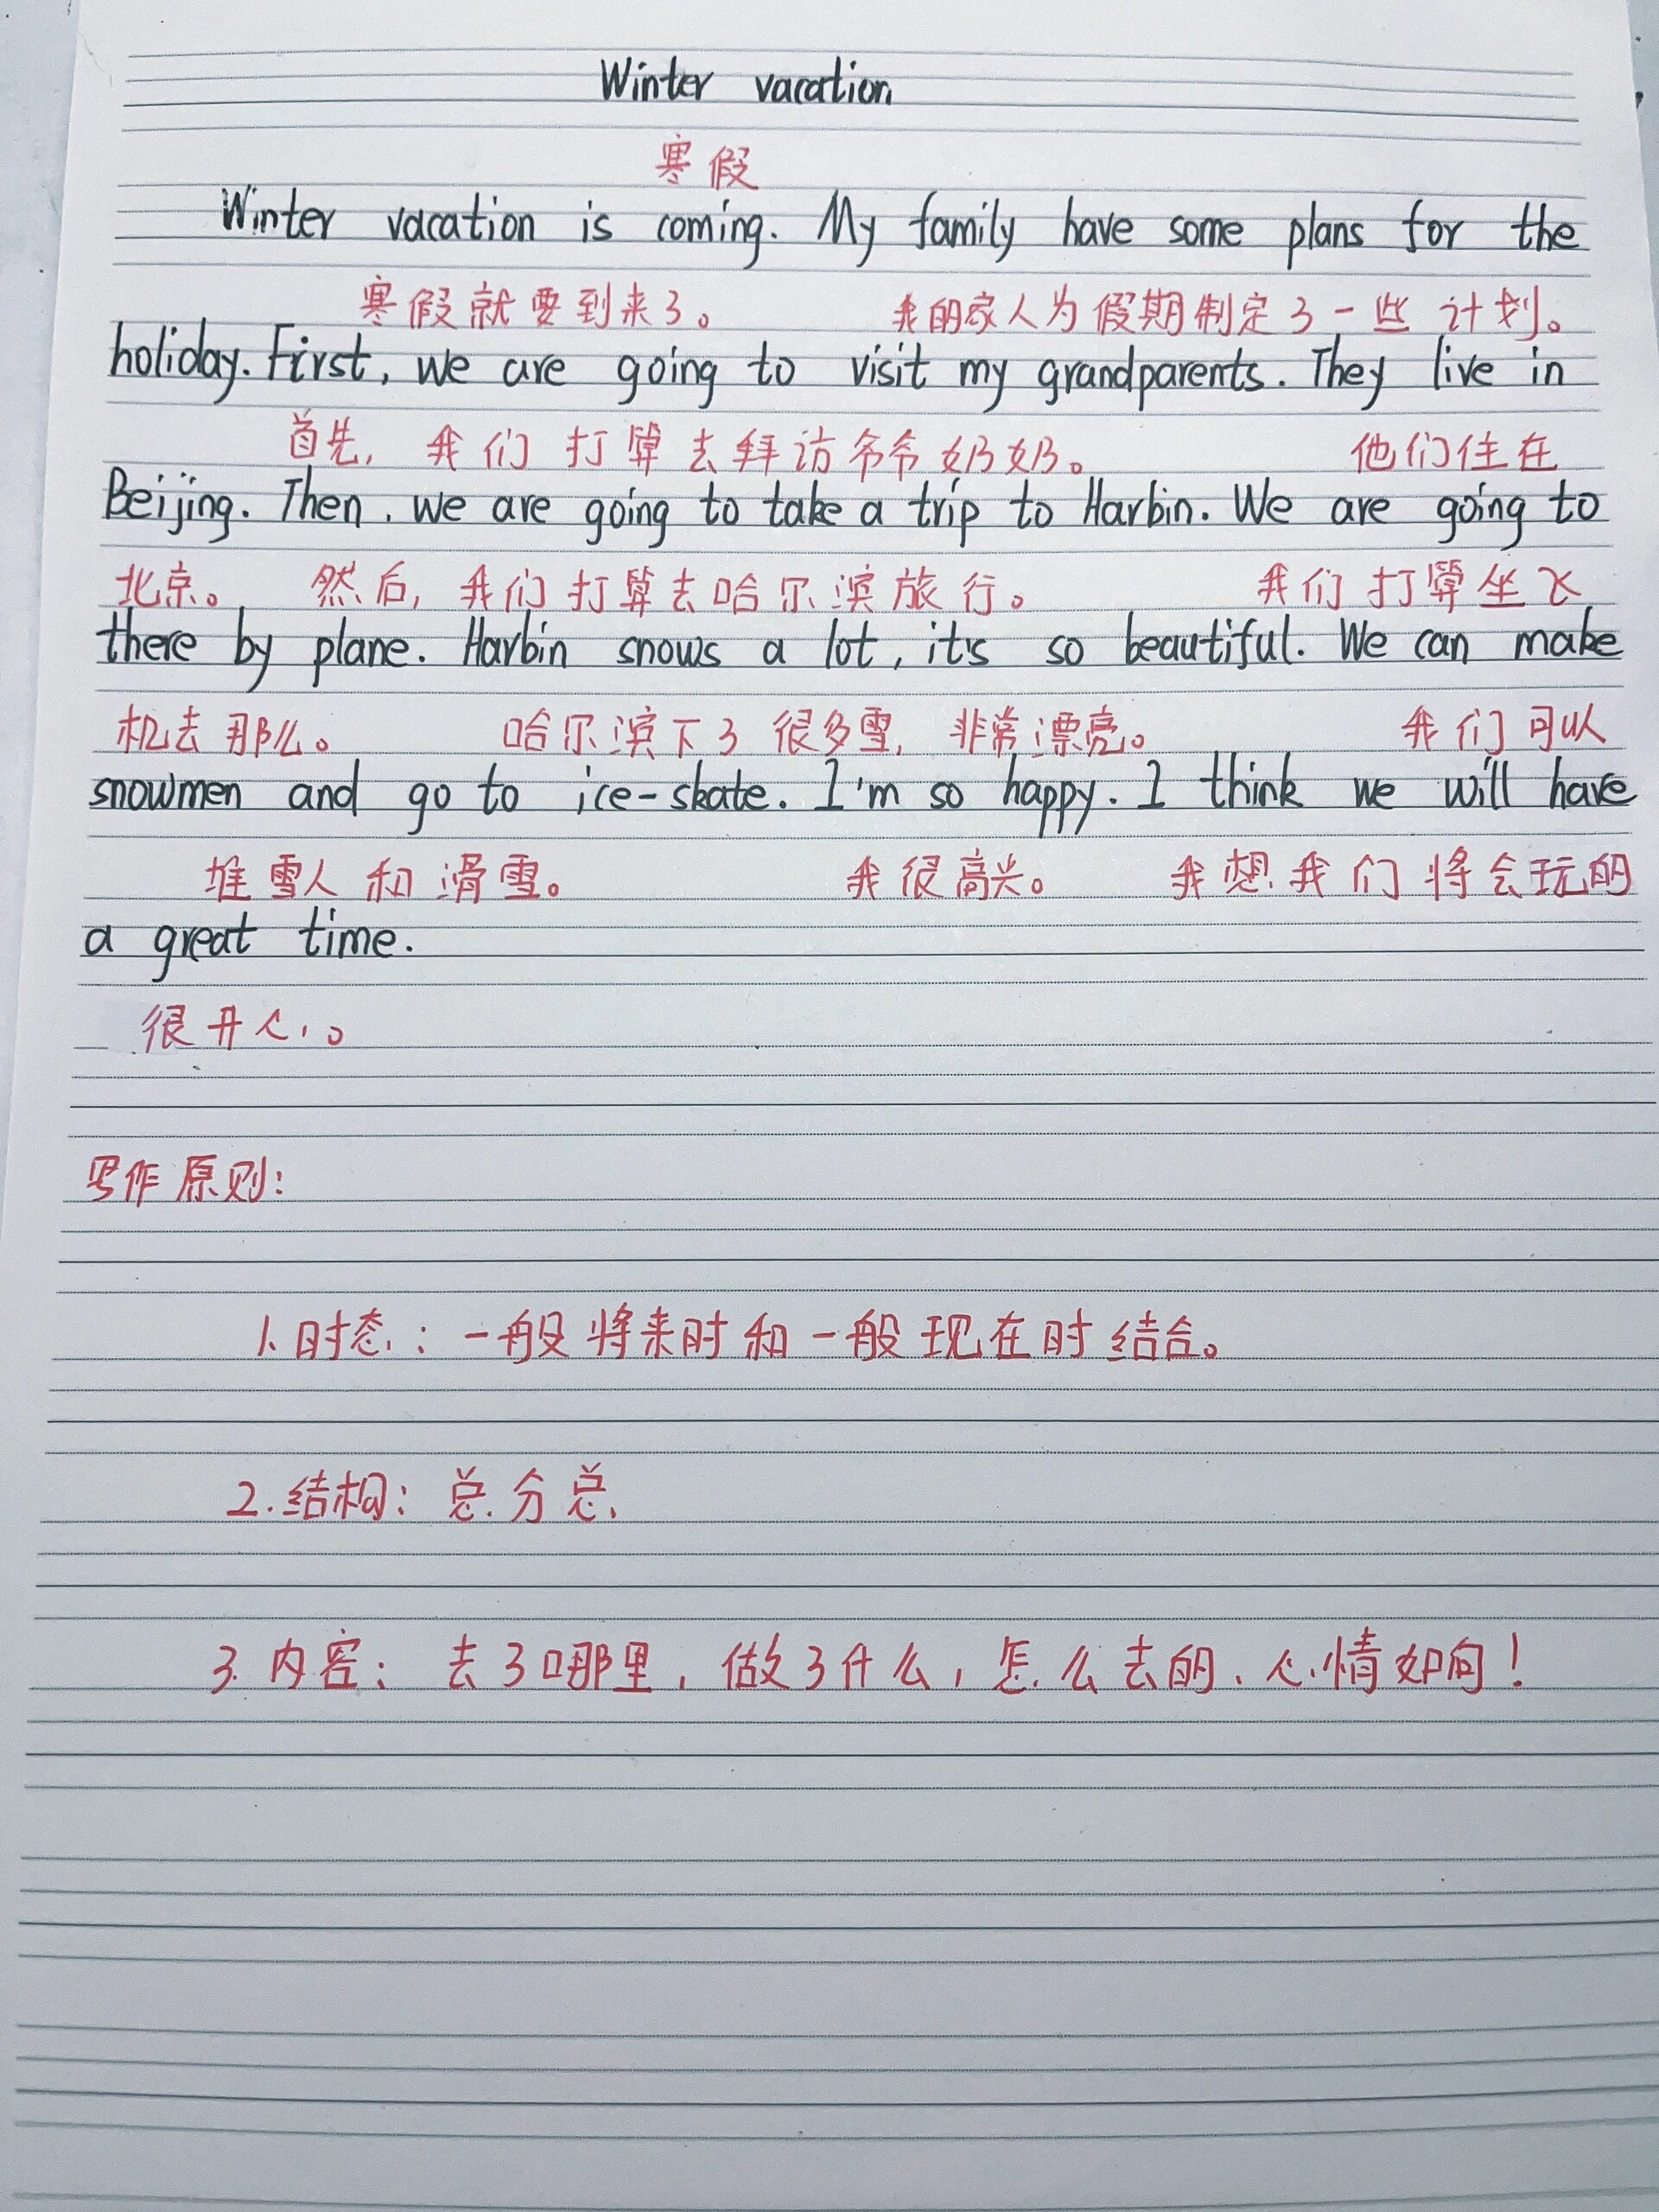 Winter vacation
寒假
Winter vacation is coming. My family have some plans for the
寒假就要到来了。 我的家人为假期制定了一些计划。
holiday. First, we are going to visit my grandparents. They live in
首先, 我们打算去拜访爷爷奶奶。 他们住在
Beijing. Then, we are going to take a trip to Harbin. We are going to
北京。 然后, 我们打算去哈尔滨旅行。 我们打算坐飞
there by plane. Harbin snows a lot, it's so beautiful. We can make
机去那么。 哈尔滨下了很多雪, 非常漂亮。 我们可以
snowmen and go to ice-skate. I'm so happy. I think we will have
堆雪人和滑雪。 我很高兴。 我想我们将会玩的
a great time.
很开心。
写作原则:
1.时态: 一般将来时和一般现在时结合。
2.结构: 总分总
3.内容: 去了哪里, 做了什么, 怎么去的、心情如何!